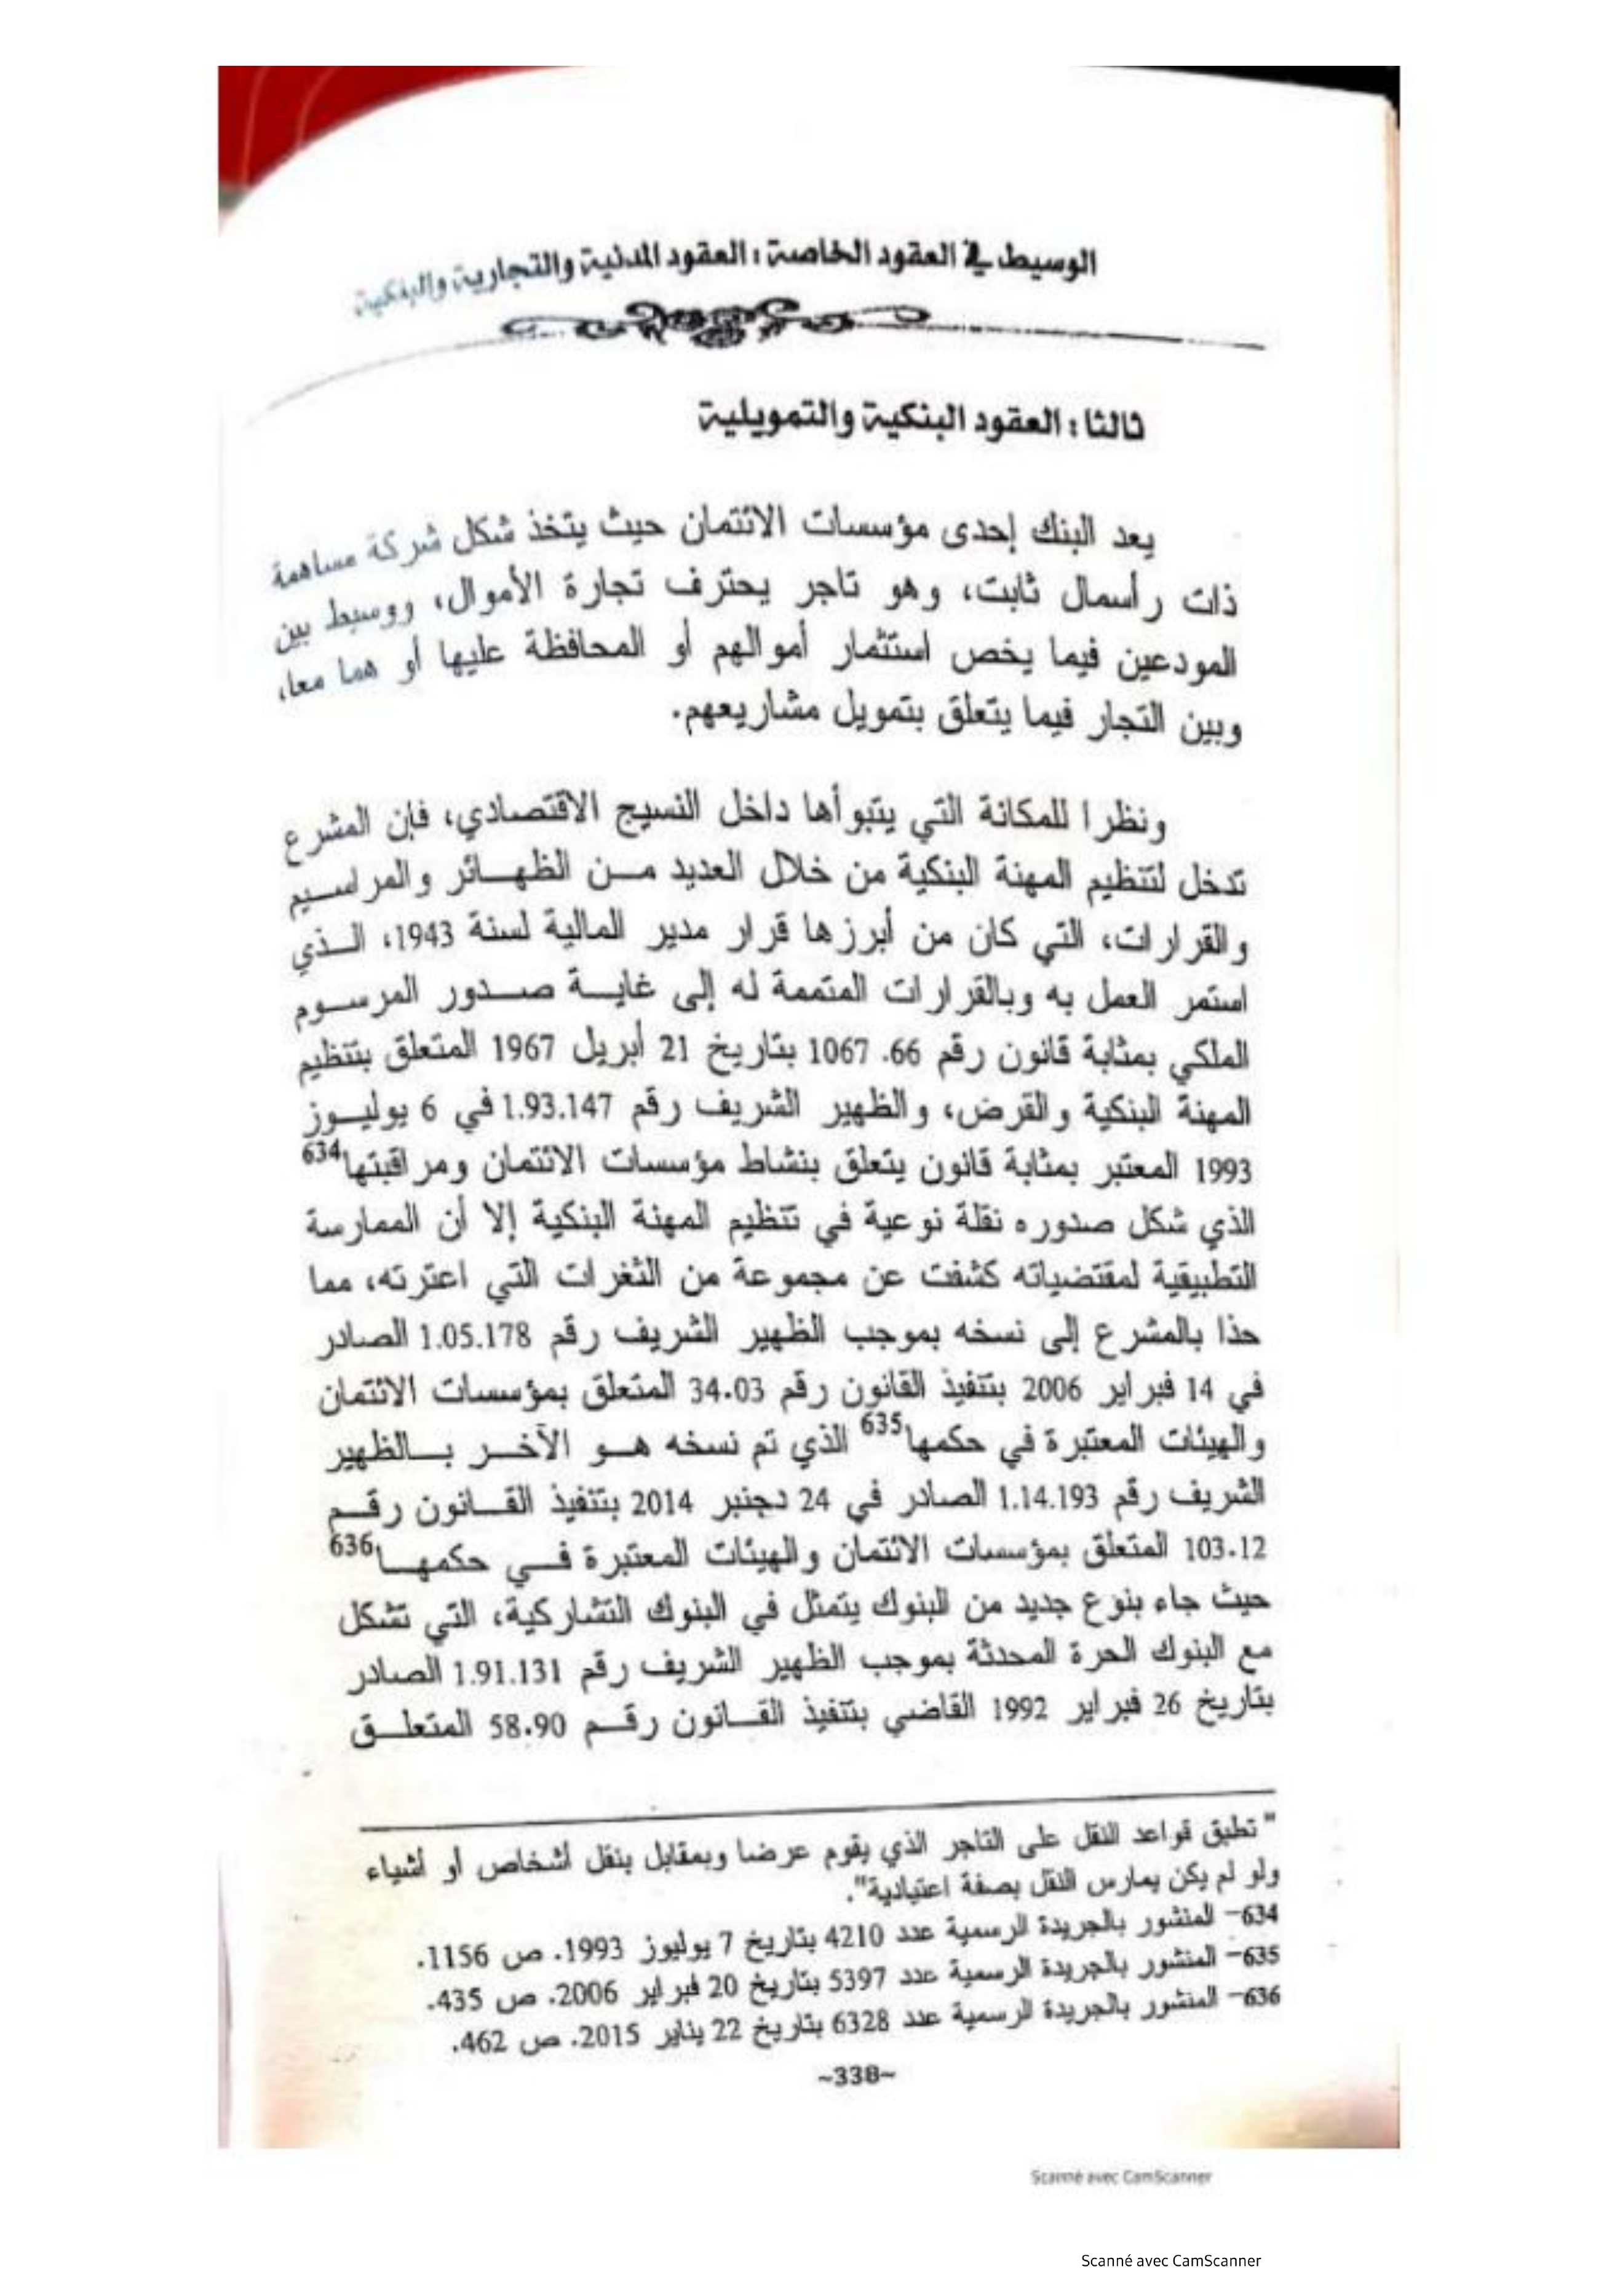 الوسيط في العقود الخاصة : العقود المدنية والتجارية والبنكية
ثالثا : العقود البنكية والتمويلية
يعد البنك إحدى مؤسسات الائتمان حيث يتخذ شكل شركة مساهمة
ذات رأسمال ثابت، وهو تاجر يحترف تجارة الأموال، ووسيط بين
المودعين فيما يخص استثمار أموالهم أو المحافظة عليها أو هما معا،
وبين التجار فيما يتعلق بتمويل مشاريعهم.
ونظرا للمكانة التي يتبوأها داخل النسيج الاقتصادي، فإن المشرع
تدخل لتنظيم المهنة البنكية من خلال العديد مــن الظهــائر والمراســيم
والقرارات، التي كان من أبرزها قرار مدير المالية لسنة 1943، الــذي
استمر العمل به وبالقرارات المتممة له إلى غايــة صــدور المرســوم
الملكي بمثابة قانون رقم 66. 1067 بتاريخ 21 أبريل 1967 المتعلق بتنظيم
المهنة البنكية والقرض، والظهير الشريف رقم 1.93.147 في 6 يوليــوز
1993 المعتبر بمثابة قانون يتعلق بنشاط مؤسسات الائتمان ومراقبتها634
الذي شكل صدوره نقلة نوعية في تنظيم المهنة البنكية إلا أن الممارسة
التطبيقية لمقتضياته كشفت عن مجموعة من الثغرات التي اعترته، مما
حذا بالمشرع إلى نسخه بموجب الظهير الشريف رقم 1.05.178 الصادر
في 14 فبراير 2006 بتنفيذ القانون رقم 34.03 المتعلق بمؤسسات الائتمان
والهيئات المعتبرة في حكمها635 الذي تم نسخه هــو الآخــر بــالظهير
الشريف رقم 1.14.193 الصادر في 24 دجنبر 2014 بتنفيذ القــانون رقــم
103.12 المتعلق بمؤسسات الائتمان والهيئات المعتبرة فــي حكمهــا636
حيث جاء بنوع جديد من البنوك يتمثل في البنوك التشاركية، التي تشكل
مع البنوك الحرة المحدثة بموجب الظهير الشريف رقم 1.91.131 الصادر
بتاريخ 26 فبراير 1992 القاضي بتنفيذ القــانون رقــم 58.90 المتعلــق
" تطبق قواعد النقل على التاجر الذي يقوم عرضا وبمقابل بنقل أشخاص أو أشياء
ولو لم يكن يمارس النقل بصفة اعتيادية".
634- المنشور بالجريدة الرسمية عدد 4210 بتاريخ 7 يوليوز 1993. ص 1156.
635- المنشور بالجريدة الرسمية عدد 5397 بتاريخ 20 فبراير 2006. ص 435.
636- المنشور بالجريدة الرسمية عدد 6328 بتاريخ 22 يناير 2015. ص 462.
~338~
Scanné avec CamScanner
Scanné avec CamScanner